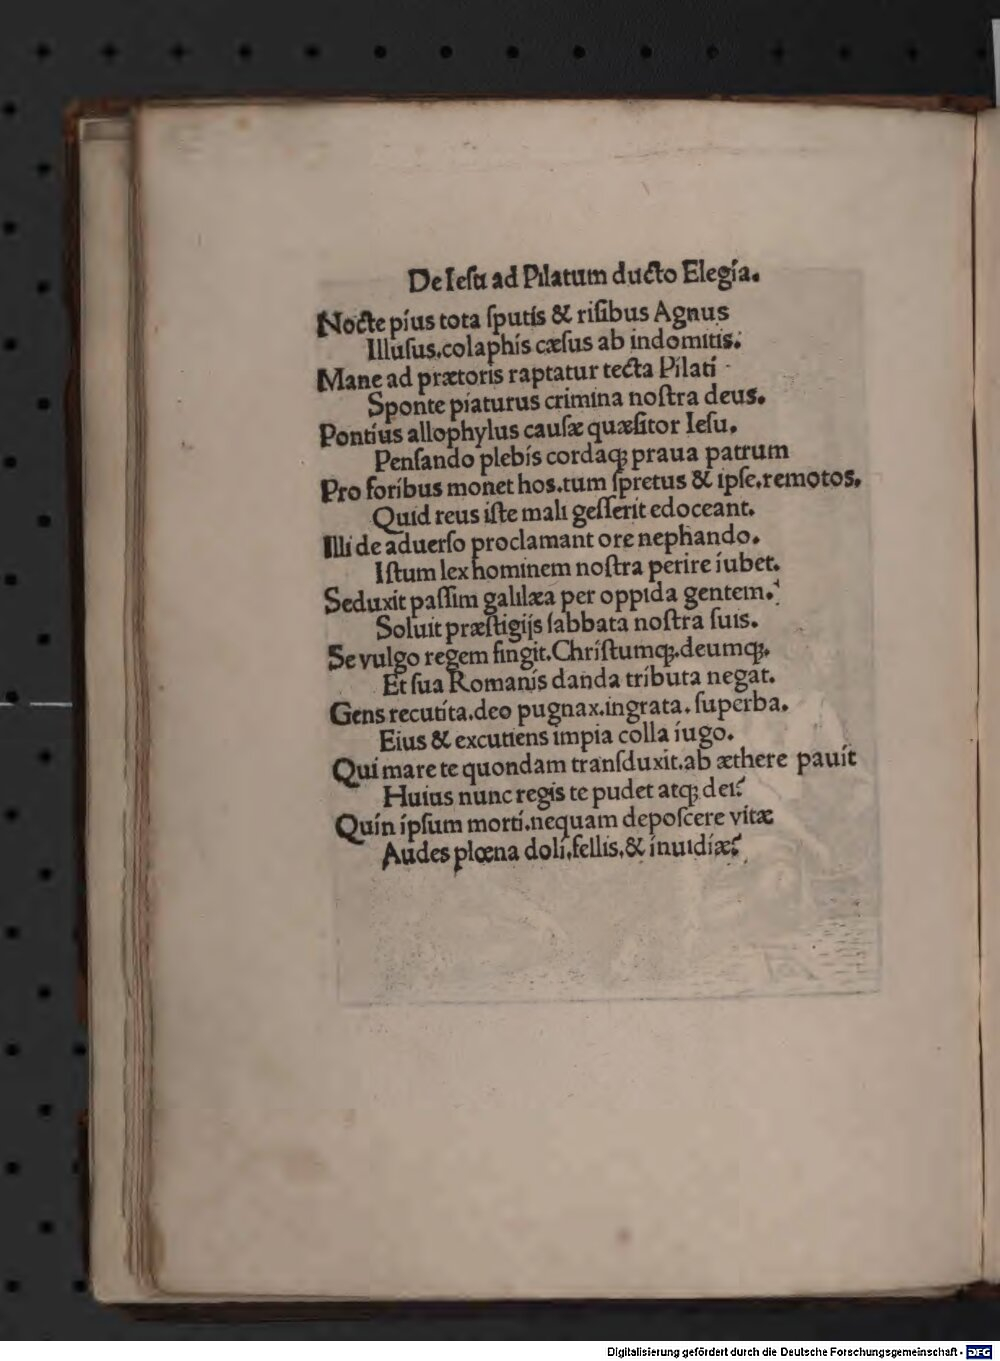 De Ieſu ad Pilatum ducto Elegia.
Nocte pius tota ſputis & riſibus Agnus
Illuſus.colaphis cæſus ab indomitis:
Mane ad prætoris raptatur tecta Pilati
Sponte piaturus crimina noſtra deus.
Pontius allophylus cauſæ quæſitor Ieſu.
Penſando plebis cordaqꝫ praua patrum
Pro foribus monet hos.tum ſpretus & ipſe.remotos.
Quid reus iſte mali geſſerit edoceant.
Illi de aduerſo proclamant ore nephando.
Iſtum lex hominem noſtra perire iubet.
Seduxit paſſim galilæa per oppida gentem.
Soluit præſtigijs ſabbata noſtra ſuis.
Se vulgo regem fingit.Chriſtumqꝫ.deumqꝫ.
Et ſua Romanis danda tributa negat.
Gens recutita.deo pugnax.ingrata.ſuperba.
Eius & excutiens impia colla iugo.
Qui mare te quondam tranſduxit.ab æthere pauit
Huius nunc regis te pudet atqꝫ dei?
Quin ipſum morti.nequam depoſcere vitæ
Audes plœna doli.fellis.& inuidiæ?
Digitalisierung gefördert durch die Deutsche Forschungsgemeinschaft - DFG